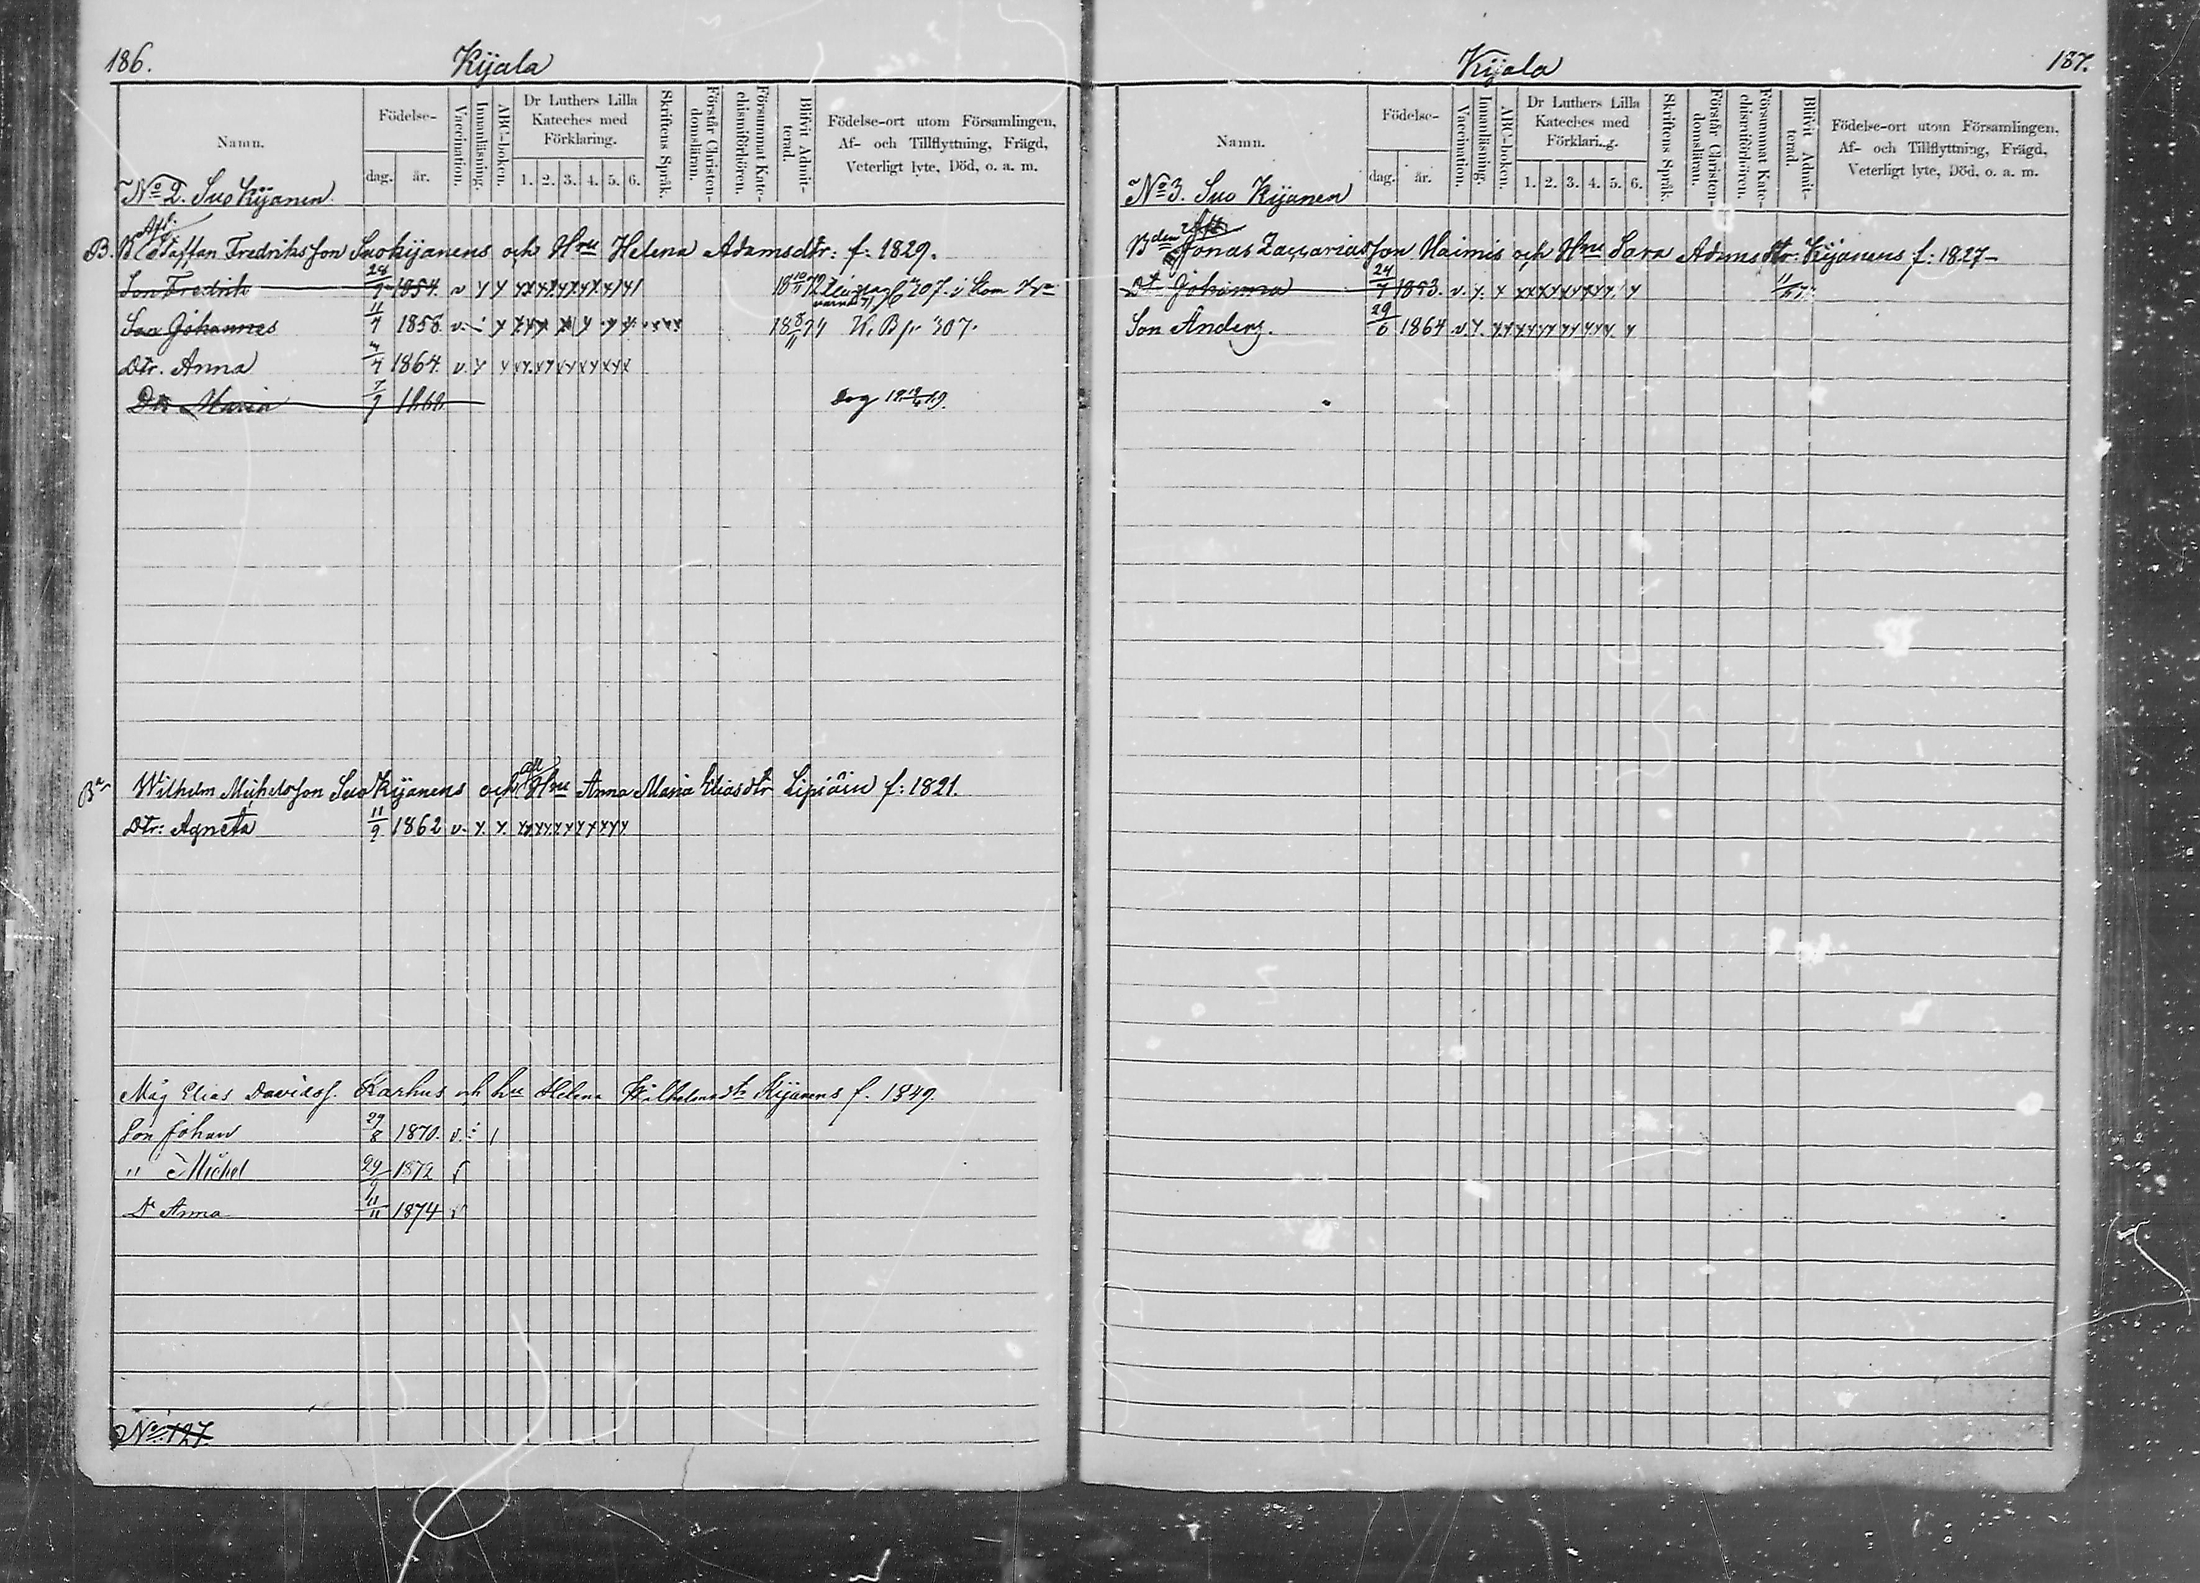 186.
Kijala
Namn.
Födelse-
dag.
år.
Vaccination.
Innanläsning.
ABC-boken.
Dr Luthers Lilla
Kateches med
Förklaring.
1. 2. 3. 4. 5. 6.
Skriftens Språk.
Förstår Christen-
domsläran.
Försummat Kate-
chismiförhören.
Blifvit Admit-
terad.
Födelse-ort utom Församlingen,
Af- och Tillflyttning, Frägd,
Veterligt lyte, Död, o. a. m.
No 2. Suo Kijanen
B. Staffan Fredriksson Suokijanens och Hru Helena Adamsdtr: f: 1829.
Son Fredrik 1854. v y y 207.
Son Johannes 11/4 1858 v. K. B p. 307.
Dtr. Anna 1864. v. y y
Dtr Maria 7/9 1868
Wilhelm Michelsson Suokijanens och Hru Anna Maria Eliasdtr Lipiäin f: 1821.
Dtr: Agneta 11/9 1862 v. y. y.
Måg Elias Davidss. Karhus och hu Helena Wilhelmsdtr Kijanens f. 1849.
Son Johan 29/8 1870. v.
" Michel 29/9 1872
Dr Anna 11/11 1874
No 127.
Kijala
187.
Namn.
Födelse-
dag.
år.
Vaccination.
Innanläsning.
ABC-boken.
Dr Luthers Lilla
Kateches med
Förklaring.
1. 2. 3. 4. 5. 6.
Skriftens Språk.
Förstår Christen-
domsläran.
Försummat Kate-
chismiförhören.
Blifvit Admit-
terad.
Födelse-ort utom Församlingen,
Af- och Tillflyttning, Frägd,
Veterligt lyte, Död, o. a. m.
No 3. Suo Kijanen
Bden Jonas Zacariasson Haimis och Hru Sara Adamsdtr: Kijanens f: 1827-
Dr Johanna 24/7 1853. v. y. y
Son Anders. 29/6 1864 v. y. y